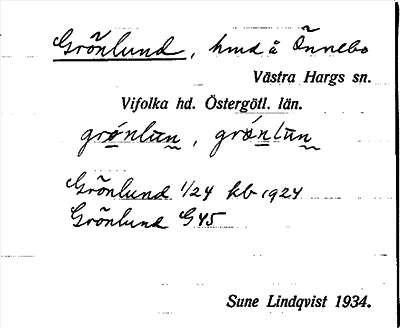 Grönlund, hmd å Önnebo
Västra Hargs sn.
Vifolka hd. Östergötl. län.
grǿnlun, grǿnlun
Grönlund 1/24 kb 1924
Grönlund G45
Sune Lindqvist 1934.